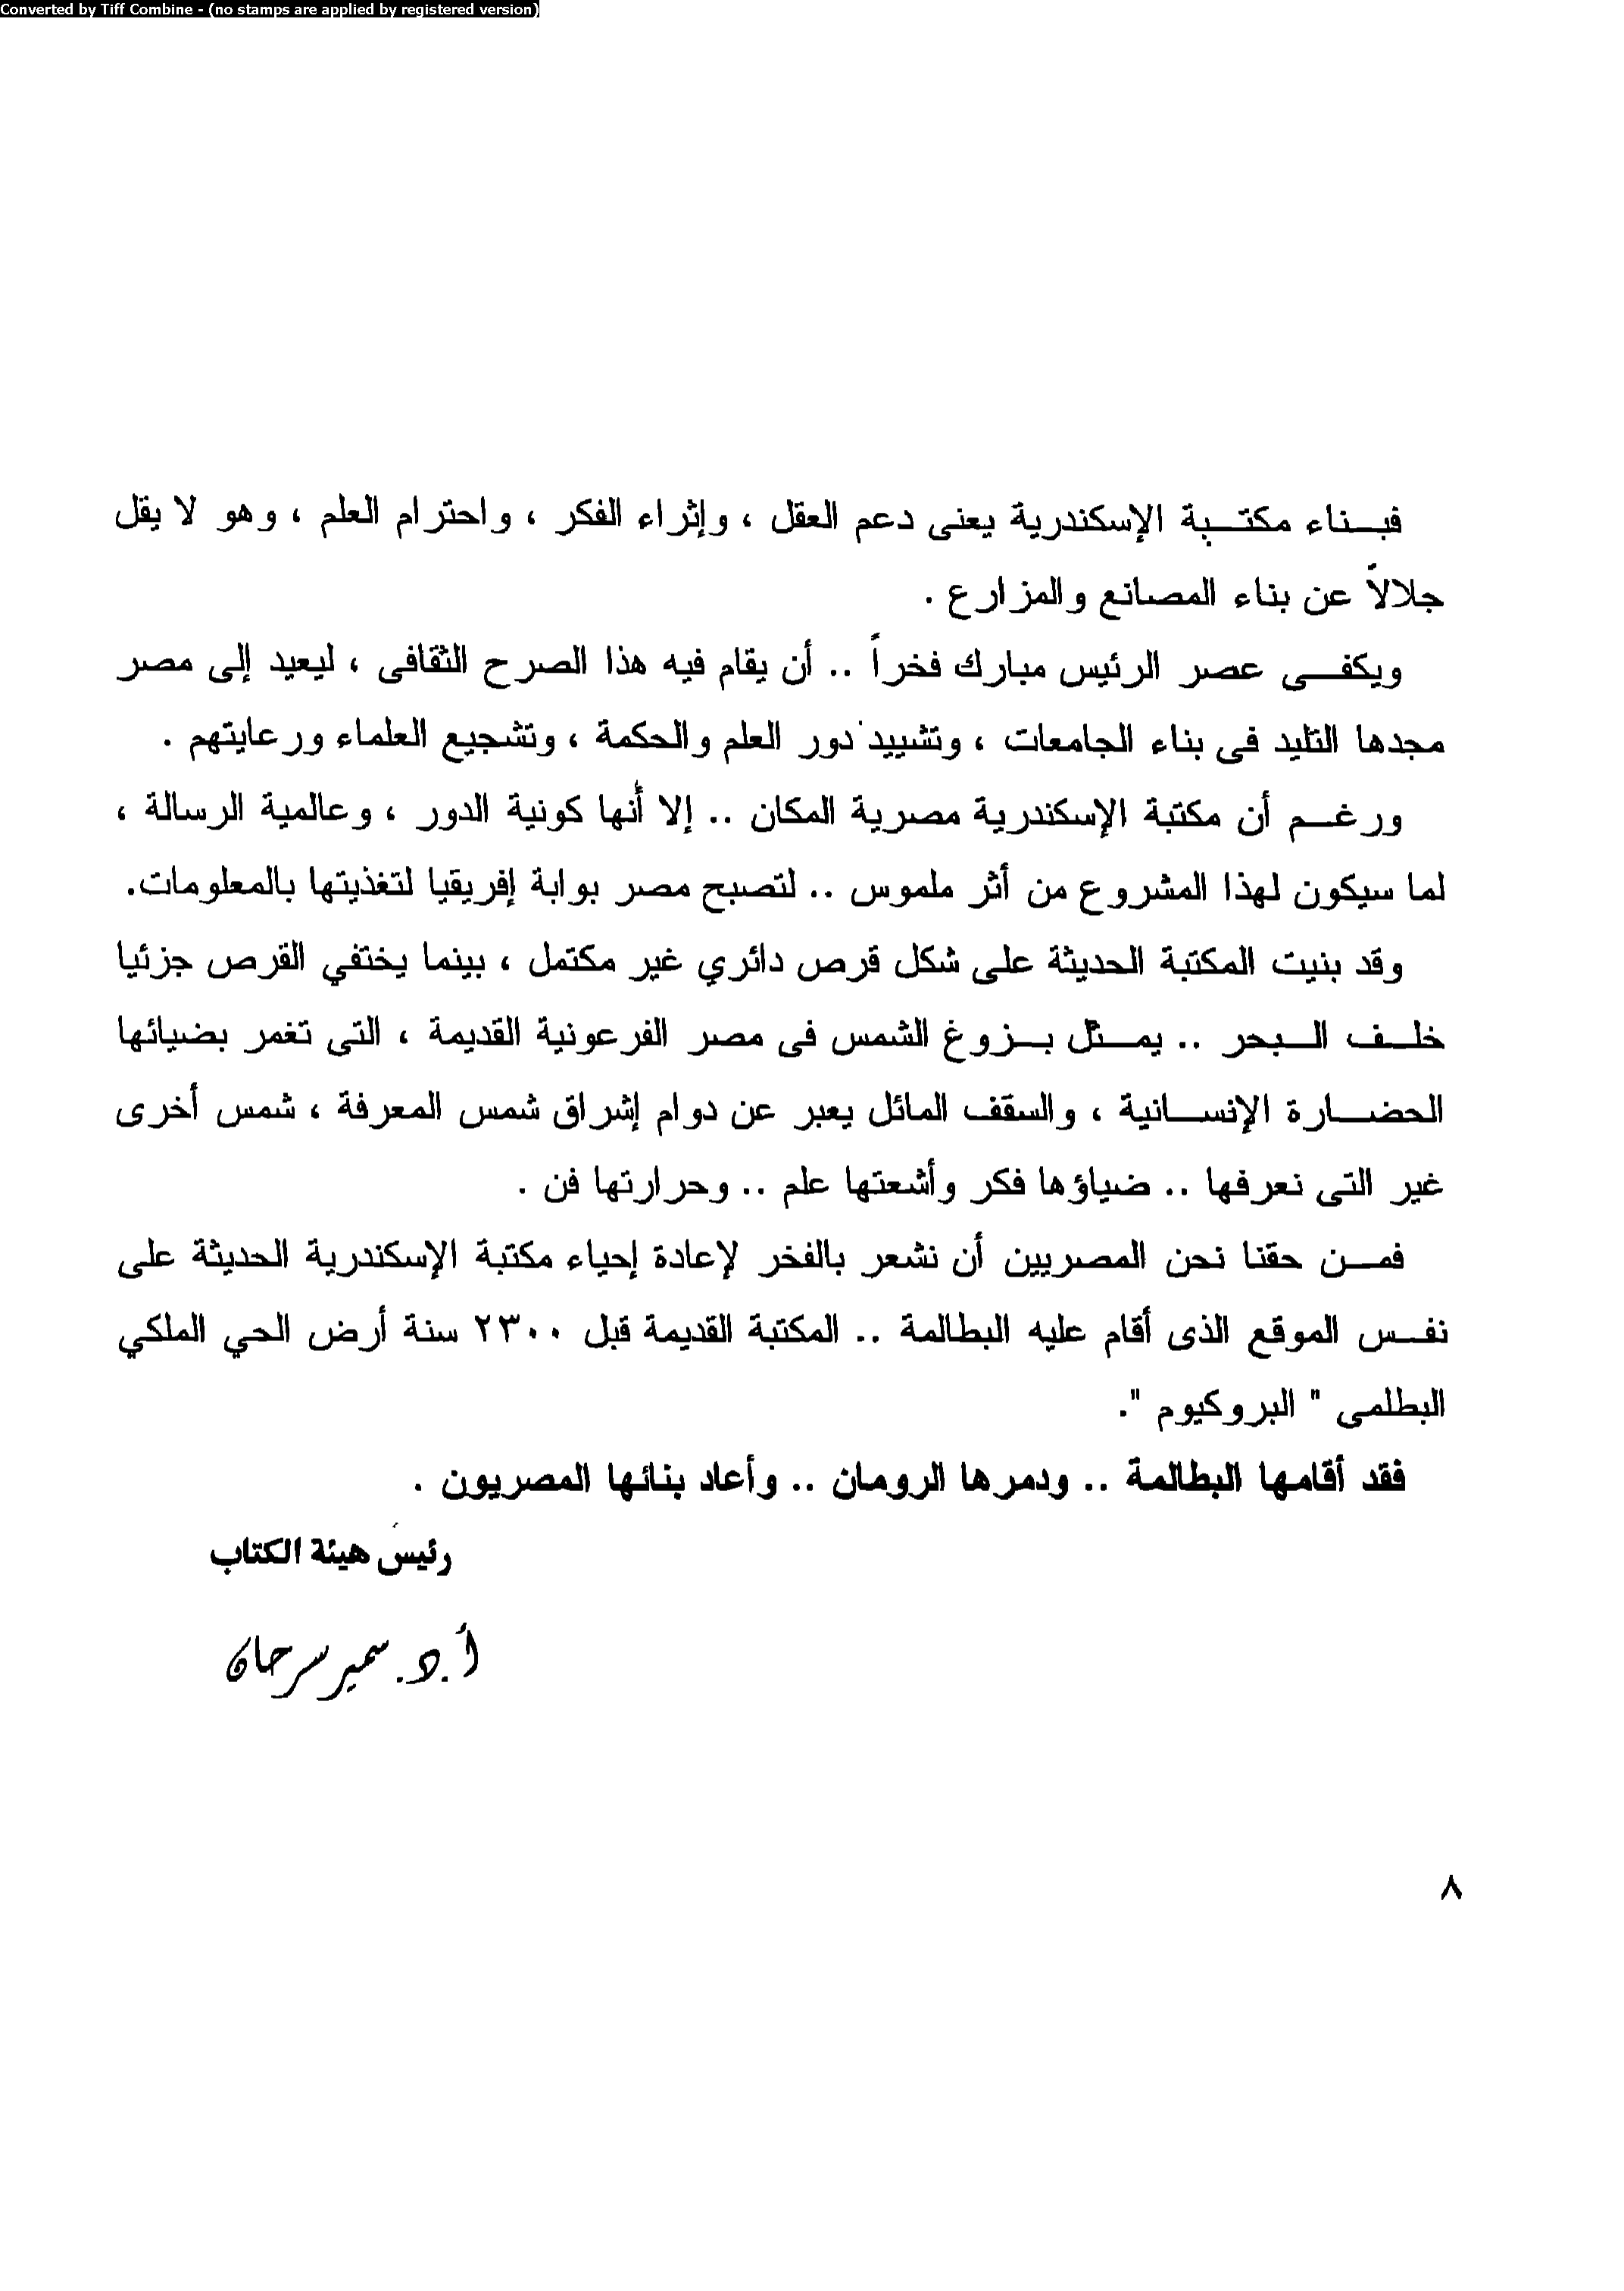 Converted by Tiff Combine - (no stamps are applied by registered version)
فبناء مكتبة الإسكندرية يعنى دعم العقل ، وإثراء الفكر ، واحترام العلم ، وهو لا يقل
جلالاً عن بناء المصانع والمزارع .
ويكفى عصر الرئيس مبارك فخراً .. أن يقام فيه هذا الصرح الثقافى ، ليعيد إلى مصر
مجدها التليد فى بناء الجامعات ، وتشييد دور العلم والحكمة ، وتشجيع العلماء ورعايتهم .
ورغم أن مكتبة الإسكندرية مصرية المكان .. إلا أنها كونية الدور ، وعالمية الرسالة ،
لما سيكون لهذا المشروع من أثر ملموس .. لتصبح مصر بوابة إفريقيا لتغذيتها بالمعلومات.
وقد بنيت المكتبة الحديثة على شكل قرص دائري غير مكتمل ، بينما يختفي القرص جزئيا
خلف البحر .. يمثل بزوغ الشمس فى مصر الفرعونية القديمة ، التى تغمر بضيائها
الحضارة الإنسانية ، والسقف المائل يعبر عن دوام إشراق شمس المعرفة ، شمس أخرى
غير التى نعرفها .. ضياؤها فكر وأشعتها علم .. وحرارتها فن .
فمن حقنا نحن المصريين أن نشعر بالفخر لإعادة إحياء مكتبة الإسكندرية الحديثة على
نفس الموقع الذى أقام عليه البطالمة .. المكتبة القديمة قبل ٢٣٠٠ سنة أرض الحي الملكي
البطلمى " البروكيوم ".
فقد أقامها البطالمة .. ودمرها الرومان .. وأعاد بنائها المصريون .
رئيس هيئة الكتاب
أ.د. سمير سرحان
٨